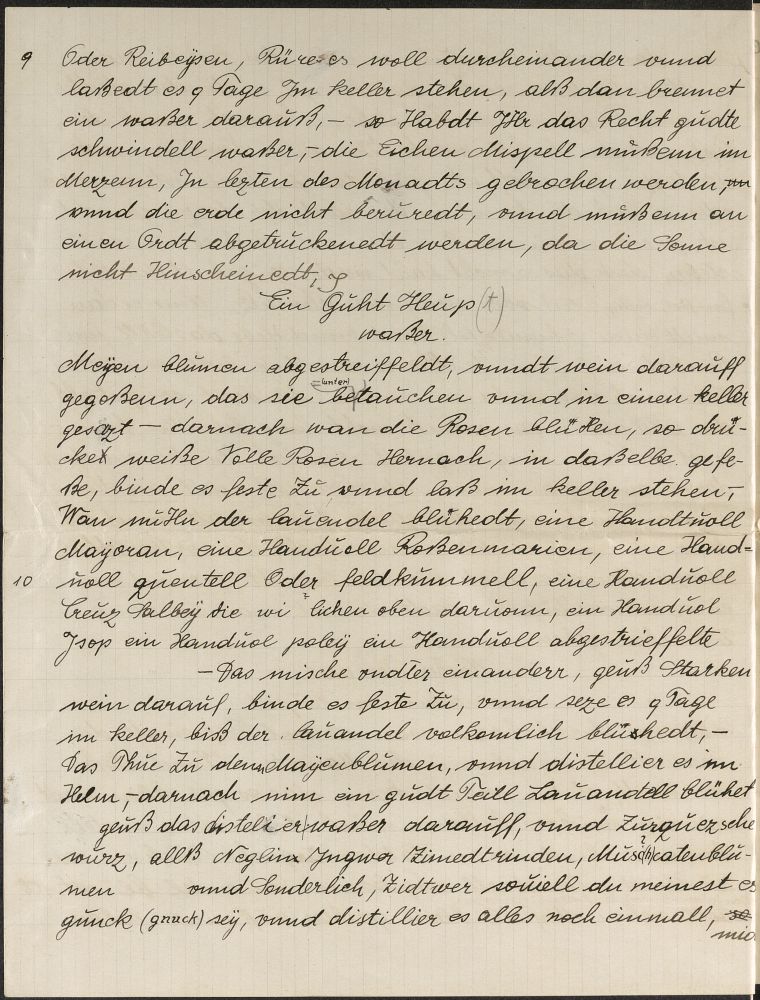 9 Oder Reibeÿsen, Rüre es woll durcheinander vnnd
laßedt es 9 Tage Jm keller stehen, alß dan brennet
ein waßer darauß, – so Habdt JHr das Recht gudte
schwindell waßer, – die Eichen Mispell müßenn im
Merzenn, Jn lezten des Monadts gebrochen werden,
vnnd die erde nicht berüredt, vnnd müßenn an
einen Ordt abgetrückenedt werden, da die Sonne
nicht Hinscheinedt,
Ein Guht Heup(t)
waßer.
Meÿen blumen abgestreiffeldt, vnndt wein darauff
(unter)
gegoßenn, das sie betauchen vnnd in einen keller
gesazt – darnach wan die Rosen blühen, so drü-
cke weiße Volle Rosen Hernach, in daßelbe gefe-
ße, binde es feste Zu vnnd laß im keller stehen,
Wan nuHn der lauendel blühedt, eine Handtuoll
Maÿoran, eine Handuoll Roßenmarien, eine Hand=
10 uoll quentell Oder feldkümmell, eine Handuoll
Creuz Salbeÿ die wi ? lichen oben daruonn, ein Handuol
Jsop ein Handuol poleÿ ein Handuoll abgestrieffelte
– Das mische vndter einanderr, geuß Starken
wein darauf, binde es feste Zu, vnnd seze es 9 Tage
im keller, biß der lauandel volkomlich blühedt, –
Das Thue Zu denn Maÿenblumen, vnnd distellier es im
Helm, – darnach nim ein gudt Teill Lauandell blühet
geuß das distelier waßer darauff, vnnd Zurquezsche
würz, allß Neglin Jngwer Zimedtrinden, Musc(h)catenblu-
men vnnd Sonderlich, Zidtwer souiell du meinest es
gunck (gnuck) seÿ, vnnd distillier es alles noch einmall, so